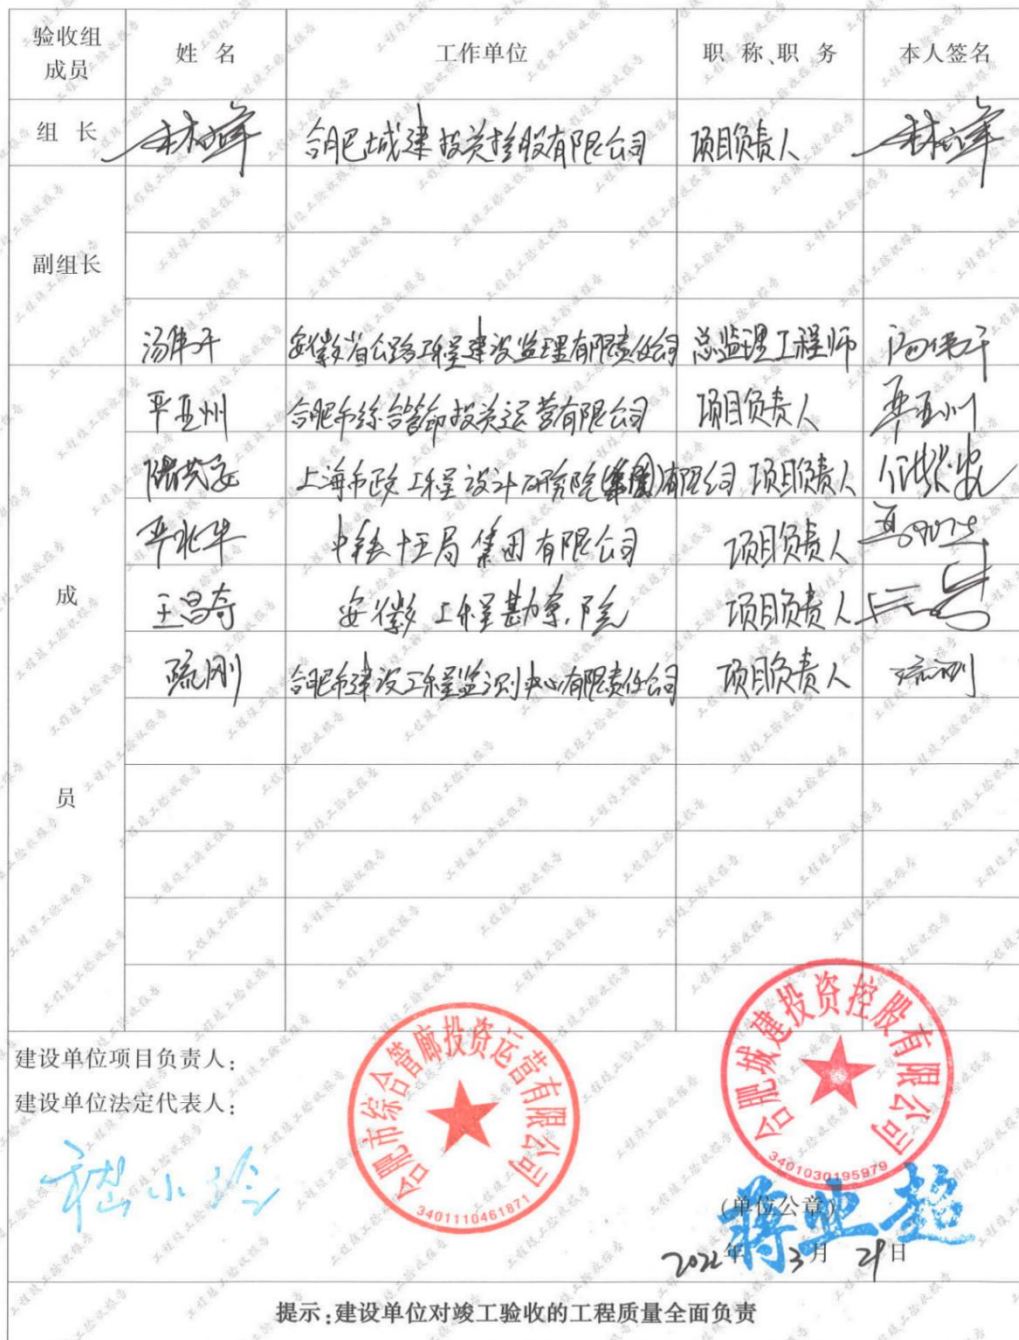 验收组成员 姓 名 工作单位 职 称、职 务 本人签名
组 长 林峰 合肥城建投资控股有限公司 项目负责人 林峰
副组长
汤伟千 安徽省公路工程建设监理有限责任公司 总监理工程师
亚州 合肥市综合管廊投资运营有限公司 项目负责人
上海市政工程设计研究院(集团)有限公司 项目负责人
中铁十五局集团有限公司 项目负责人
王昌奇 安徽工程勘察院 项目负责人
疏刚 合肥市建设工程监测中心有限责任公司 项目负责人 疏刚
成
员
建设单位项目负责人:
建设单位法定代表人:
合肥市综合管廊投资运营有限公司
3401110461871
合肥城建投资控股有限公司
3401030195979
(单位公章)
蒋亚超
2022年 3月 29日
提示:建设单位对竣工验收的工程质量全面负责
工程竣工验收报告